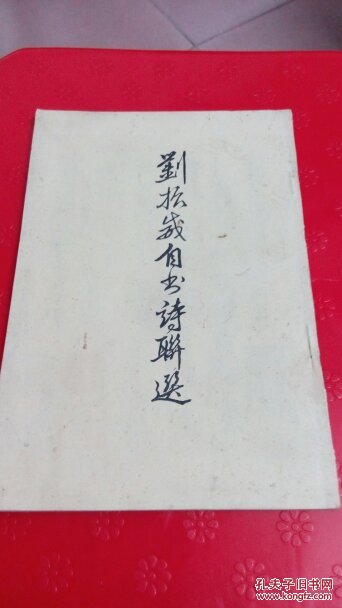 劉松岩自书詩聯選
孔夫子旧书网
www.kongfz.com